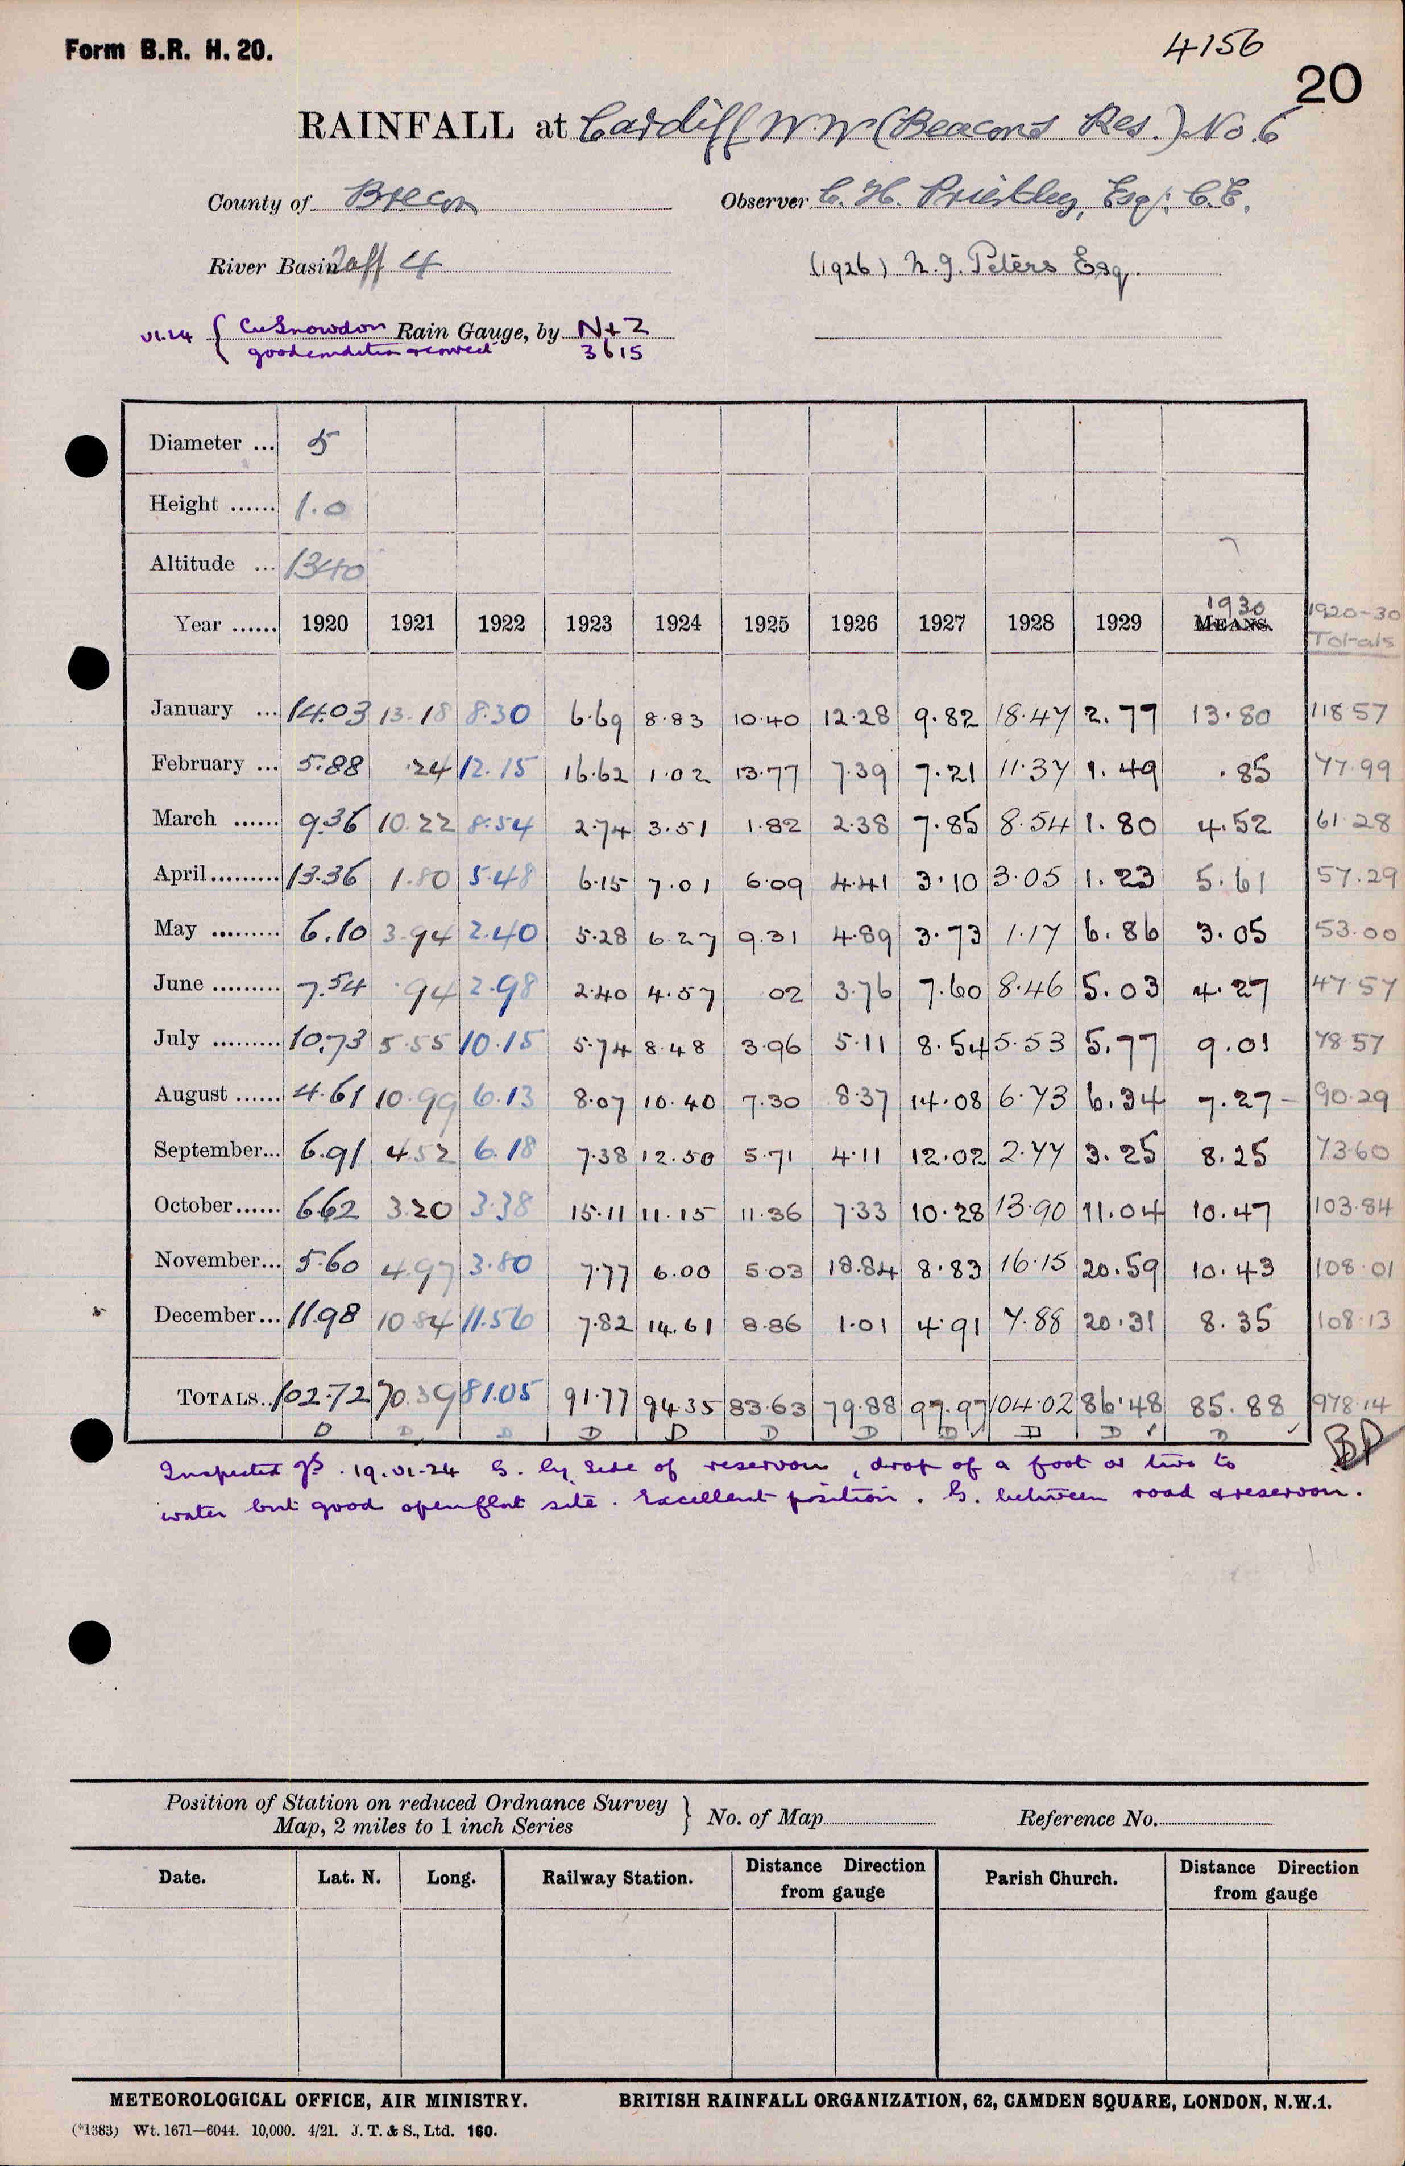 Form B.R. H. 20.
4156
20
RAINFALL at Cardiff W W (Beacons Res.) No. 6
County of Brecon Observer C. H. Priestley, Esq. C.E.
River Basin Taff 4 (1926) N. J. Peters Esq.
VI.24 { Cu Snowdon Rain Gauge, by N+Z
good condition & correct 3615
Diameter ... 5
Height ...... 1.0
Altitude ... 1340
Year ...... 1920 1921 1922 1923 1924 1925 1926 1927 1928 1929 1930 MEANS. 1920-30 Totals
January ... 14.03 13.18 8.30 6.69 8.83 10.40 12.28 9.82 18.47 2.77 13.80 118.57
February ... 5.88 .24 12.15 16.62 1.02 13.77 7.39 7.21 11.37 1.49 .85 77.99
March ...... 9.36 10.22 8.54 2.74 3.51 1.82 2.38 7.85 8.54 1.80 4.52 61.28
April......... 13.36 1.80 5.48 6.15 7.01 6.09 4.41 3.10 3.05 1.23 5.61 57.29
May ......... 6.10 3.94 2.40 5.28 6.27 9.31 4.89 3.73 1.17 6.86 3.05 53.00
June ......... 7.54 .94 2.98 2.40 4.57 02 3.76 7.60 8.46 5.03 4.27 47.57
July ......... 10.73 5.55 10.15 5.74 8.48 3.96 5.11 8.54 5.53 5.77 9.01 78.57
August ...... 4.61 10.99 6.13 8.07 10.40 7.30 8.37 14.08 6.73 6.34 7.27 - 90.29
September... 6.91 4.52 6.18 7.38 12.50 5.71 4.11 12.02 2.77 3.25 8.25 73.60
October...... 6.62 3.20 3.38 15.11 11.15 11.36 7.33 10.28 13.90 11.04 10.47 103.84
November... 5.60 4.97 3.80 7.77 6.00 5.03 18.84 8.83 16.15 20.59 10.43 108.01
December... 11.98 10.84 11.56 7.82 14.61 8.86 1.01 4.91 7.88 20.31 8.35 108.13
TOTALS.. 102.72 70.39 81.05 91.77 94.35 83.63 79.88 97.97 104.02 86.48 85.88 978.14
D D D D D D D D D D BP
Inspected 19.VI.24 G. by side of reservoir, drop of a foot or two to
water but good open flat site. Excellent position. G. between road & reservoir.
Position of Station on reduced Ordnance Survey
Map, 2 miles to 1 inch Series } No. of Map Reference No.
Date. Lat. N. Long. Railway Station. Distance Direction from gauge Parish Church. Distance Direction from gauge
METEOROLOGICAL OFFICE, AIR MINISTRY. BRITISH RAINFALL ORGANIZATION, 62, CAMDEN SQUARE, LONDON, N.W.1.
(*1383) Wt. 1671—6044. 10,000. 4/21. J. T. & S., Ltd. 160.